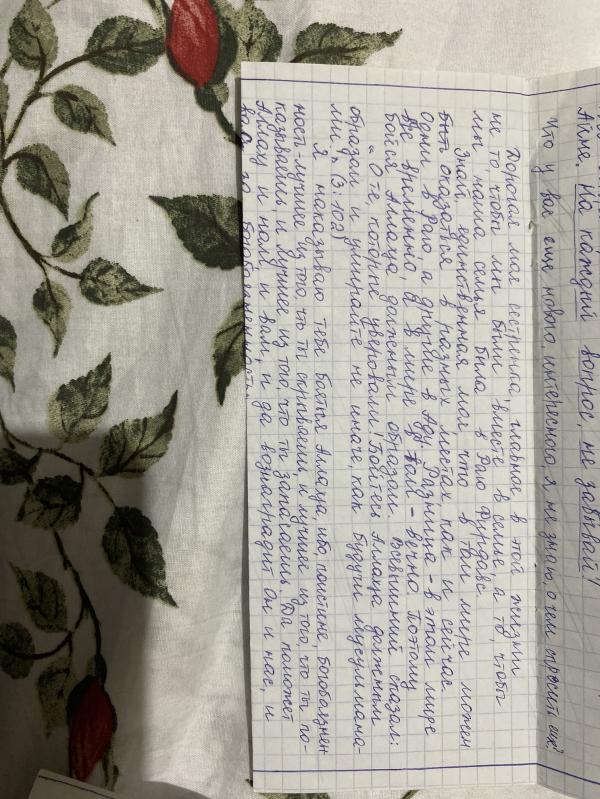 Айна. На каждый вопрос, не забывай?
Что у вас еще нового, интересного, я не знаю о чем спросить еще?
Дорогая моя сестричка, главное в этой жизни
не то, чтобы мы были вместе в семье, а то, чтобы
мы, наша семья была в Раю Фирдавс.
Знай, единственная моя, что в том мире можем
быть оказаться в разных местах, как и сейчас.
Одни в Раю, а другие в Аду. Разница - в этом мире
все временно, а в мире том - вечно. Поэтому
бойся Аллаха должным образом. Всевышний сказал:
„О те, которые уверовали! Бойтесь Аллаха должным
образом и умирайте не иначе, как будучи мусульмана-
ми." (3:102)
Я наказываю тебе боятья Аллаха, ибо, поистине, богобоязнен
ность - лучшее из того, что ты скрываешь, и лучшее из того, что ты по-
казываешь, и лучшее из того что ты запасаешь. Да поможет
Аллах и нам и вам, и да вознаградит Он и нас, и
вас за